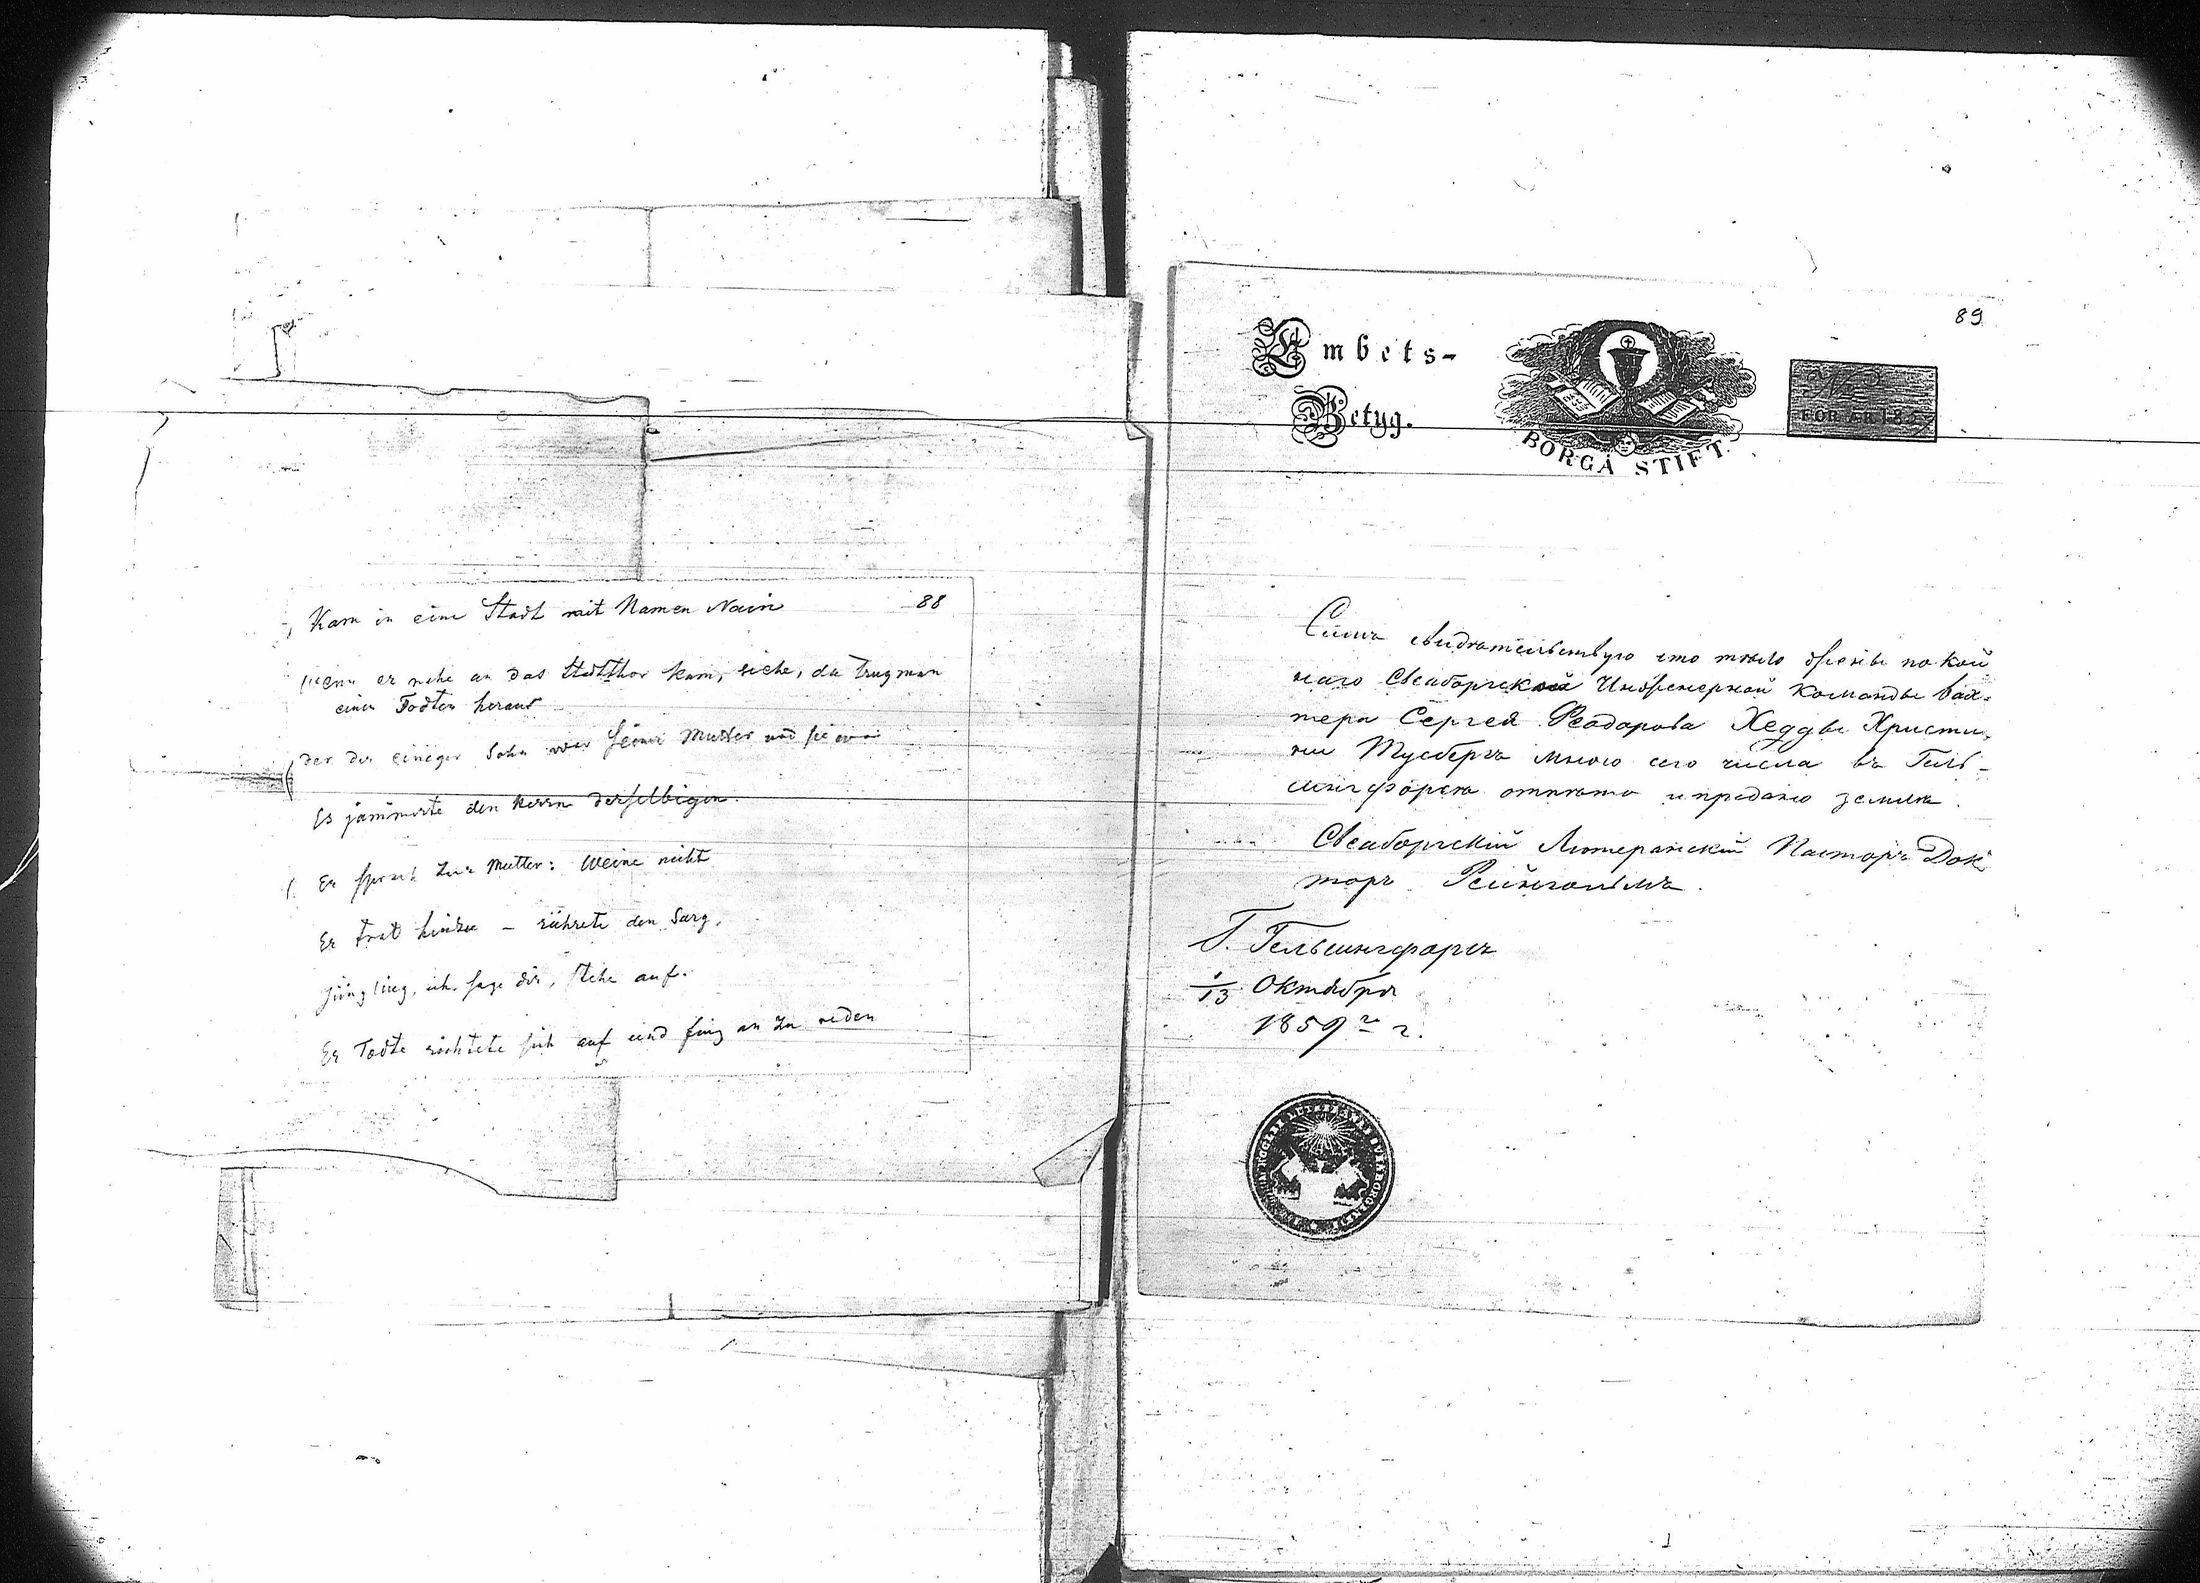 88
Kam in eine Stadt mit Namen Nain
wenn er nahe an das Stadtthor kam, siehe, da trug man
einen Todten heraus
der der einiger Sohn war seiner Mutter und sie
Es jammerte den Herrn derselbigen.
Er sprach zur Mutter: Weine nicht
Er trat hinzu – rührete den Sarg.
Jüngling, ich sage dir, stehe auf.
Er Todte richtete sich auf und fing an zu reden
89
Embets-
Betyg.
BORGÅ STIFT.
FÖR ÅR 185
Симъ свидѣтельствую что тѣло покой
наго Свеаборгской Инженерной Команды Вах-
тера Сергея Феодорова Хедды Христи-
ны Тусбергъ мною сего числа въ Гель-
сингфорсѣ отпѣто и предано землѣ.
Свеаборгскій Лютеранскій Пасторъ Док
торъ Рейнгольмъ.
Г. Гельсингфорсъ
1/13 Октября
1859 г.